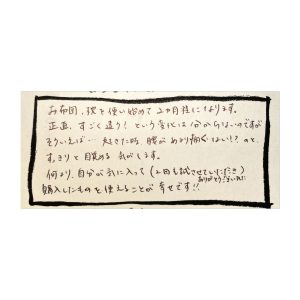 お布団、枕を使い始めて2ヵ月程になります。
正直、すごく違う!という変化は分からないのですが
そういえば… 起きた時、腰があまり痛くない!?のと、
すっきりと目覚める気がします。
何より、自分が気に入って(2回も試させていただき
ありがとうございました)
購入したものを使えることが幸せです!!